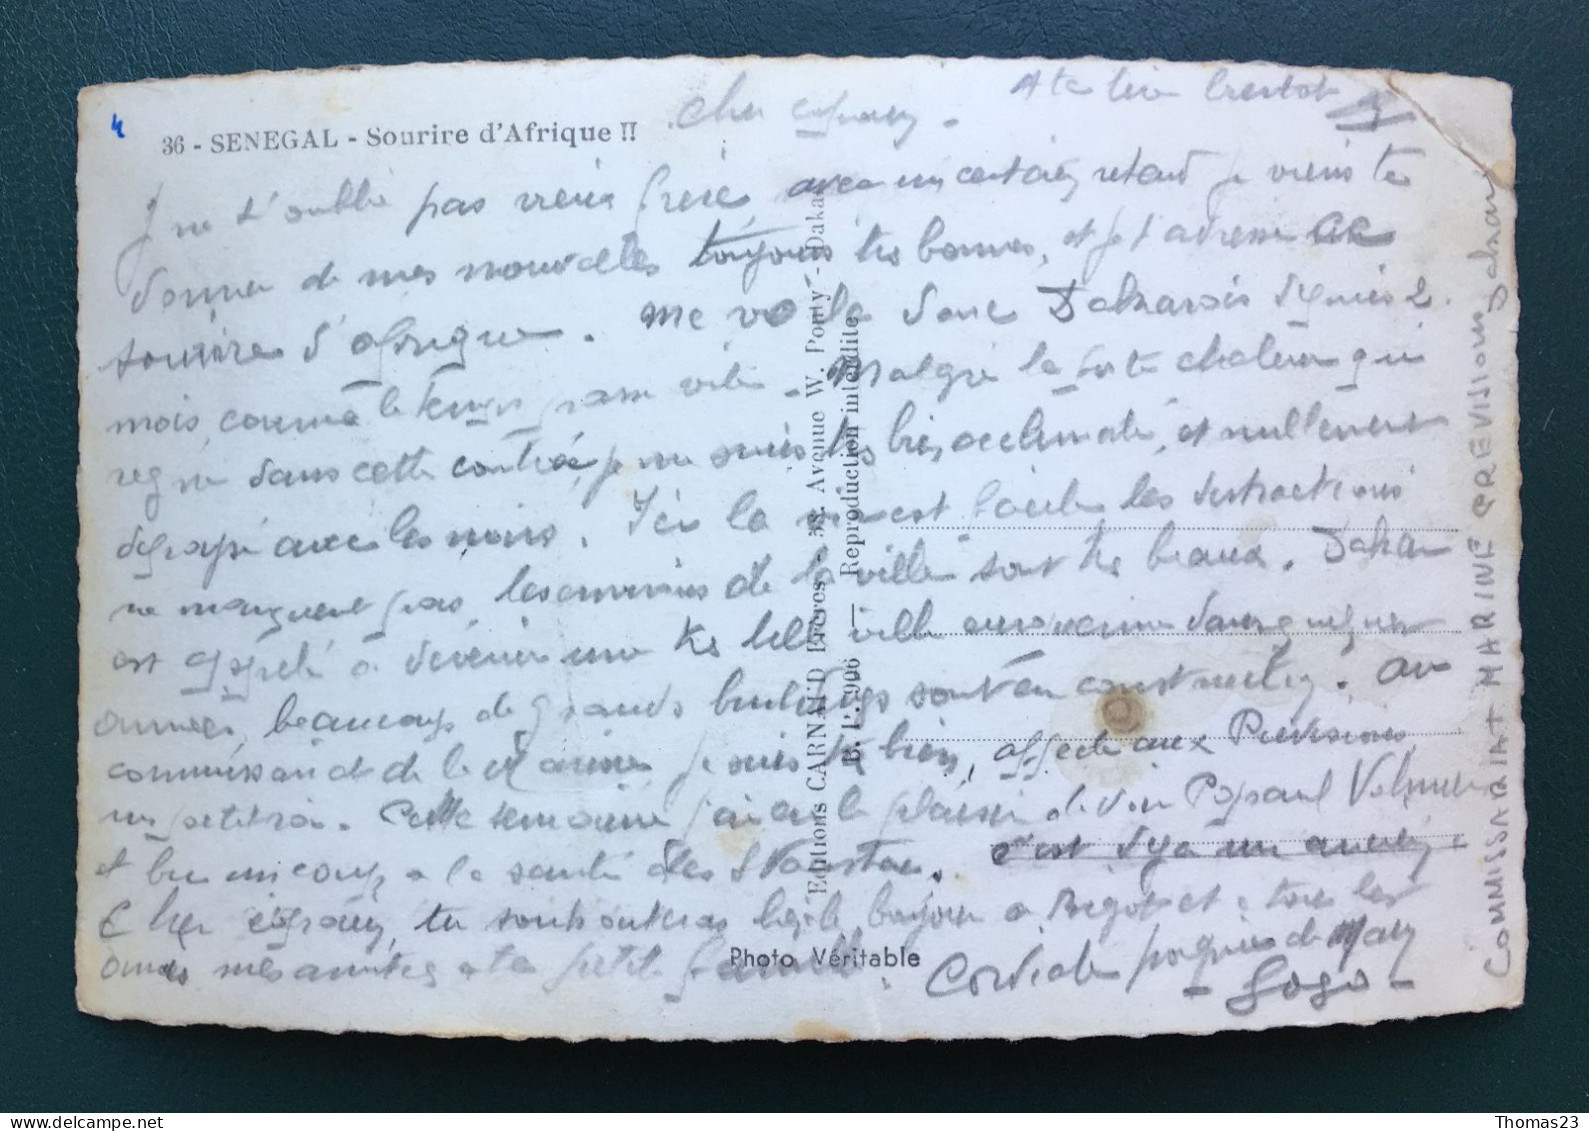 4
36 - SENEGAL - Sourire d'Afrique !!
Cher copain.
Je ne t'oublie pas vieux frère avec un certain retard je viens te
donner de mes nouvelles toujours très bonnes, et je t'adresse ce
sourire d'Afrique. Me voila donc Dakarois depuis 2
mois, comme le temps passe vite. Malgré la forte chaleur qui
règne dans cette contrée, je me suis très bien acclimaté, et nullement
dépaysé avec les noirs. Ici la vie est facile les distractions
ne manquent pas, les environs de la ville sont très beaux. Dakar
est appelé a devenir une très belle ville européenne dans quelques
années, beaucoup de grands buildings sont en construction. Au
commissariat de la Marine je suis très bien, affecté aux Prévisions
. Cette semaine j'ai eu le plaisir de voir Popaul
et bu un coup a la santé des . c'est déjà un ancien.
Cher copain, tu souhaiteras bien le bonjour a et a tous les
amis mes amitiés a ta petite famille. Cordiale poignée de Main
- Gogo -
COMMISSARIAT MARINE PREVISIONS Dakar
Editions CARNAUD Frères - 53, Avenue W. Ponty - Dakar
B. P. 906 — Reproduction interdite
Photo Véritable
delcampe.net
Thomas23